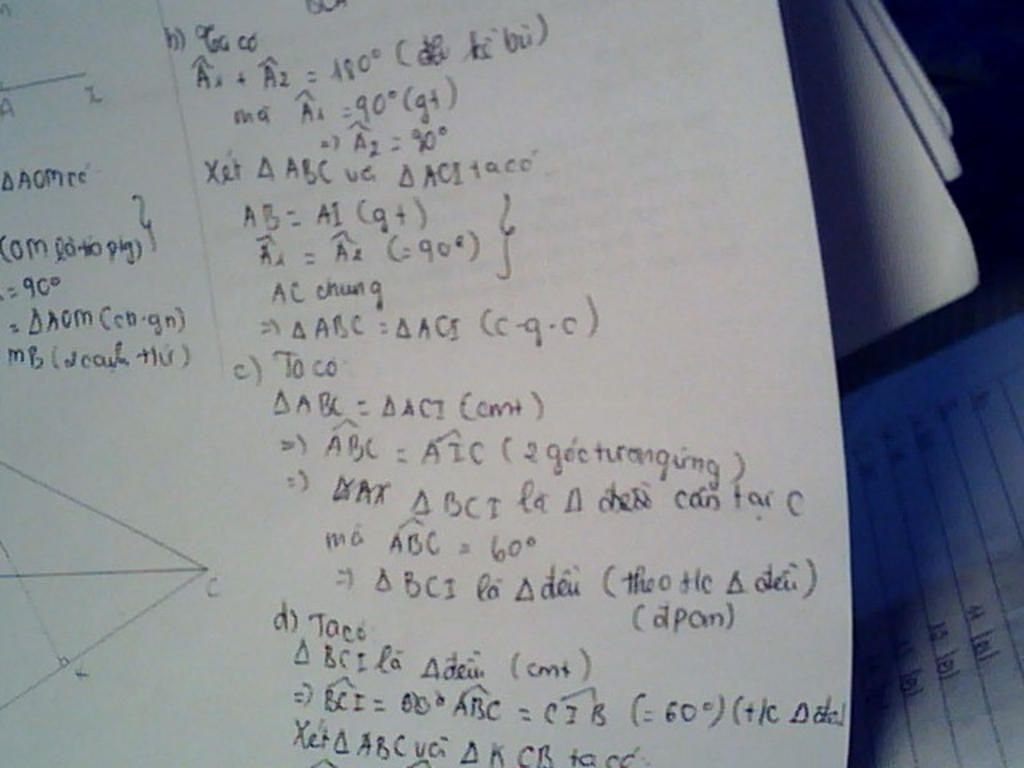 A x
ΔAOM có
(OM là tia p/g)
= 90°
= ΔAOM (ch-gn)
MB (2 cạnh t/ứ)
b) Ta có
Â₁ + Â₂ = 180° (kề bù)
mà Â₁ = 90° (gt)
=> Â₂ = 90°
Xét Δ ABC và Δ ACI ta có
AB = AI (gt)
Â₁ = Â₂ (= 90°)
AC chung
=> Δ ABC = Δ ACI (c-g-c)
c) Ta có
Δ ABC = Δ ACI (cmt)
=> ABC = AIC (2 góc tương ứng)
=> Δ BCI là Δ cân tại C
mà ABC = 60°
=> Δ BCI là Δ đều (theo t/c Δ đều)
(đpcm)
C
K
d) Ta có
Δ BCI là Δ đều (cmt)
=> BCI = ABC = CIB (= 60°) (t/c Δ
Xét Δ ABC và Δ KCB ta có